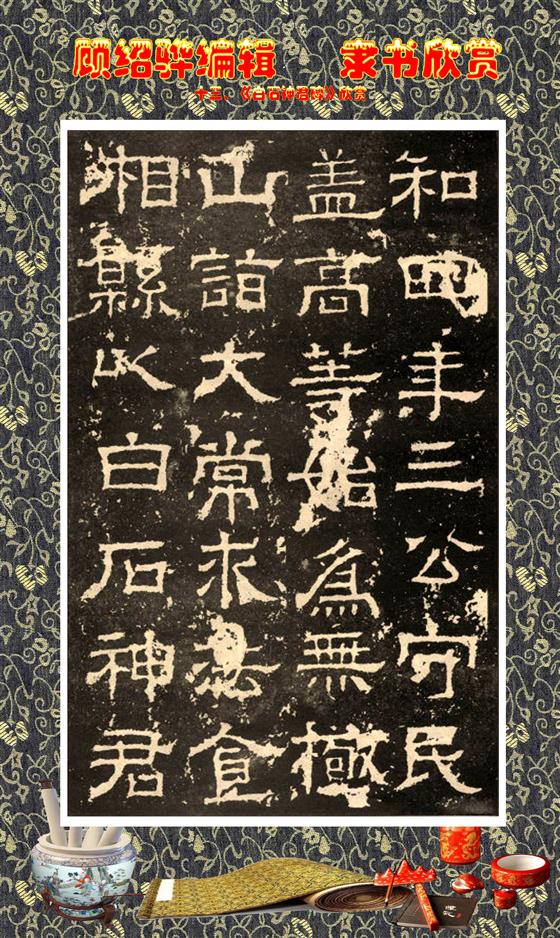 顾绍骅编辑 隶书欣赏
十三、《白石神君碑》欣赏
和四年三公守民
盖高等始為無極
山詣大常求法食
相縣以白石神君